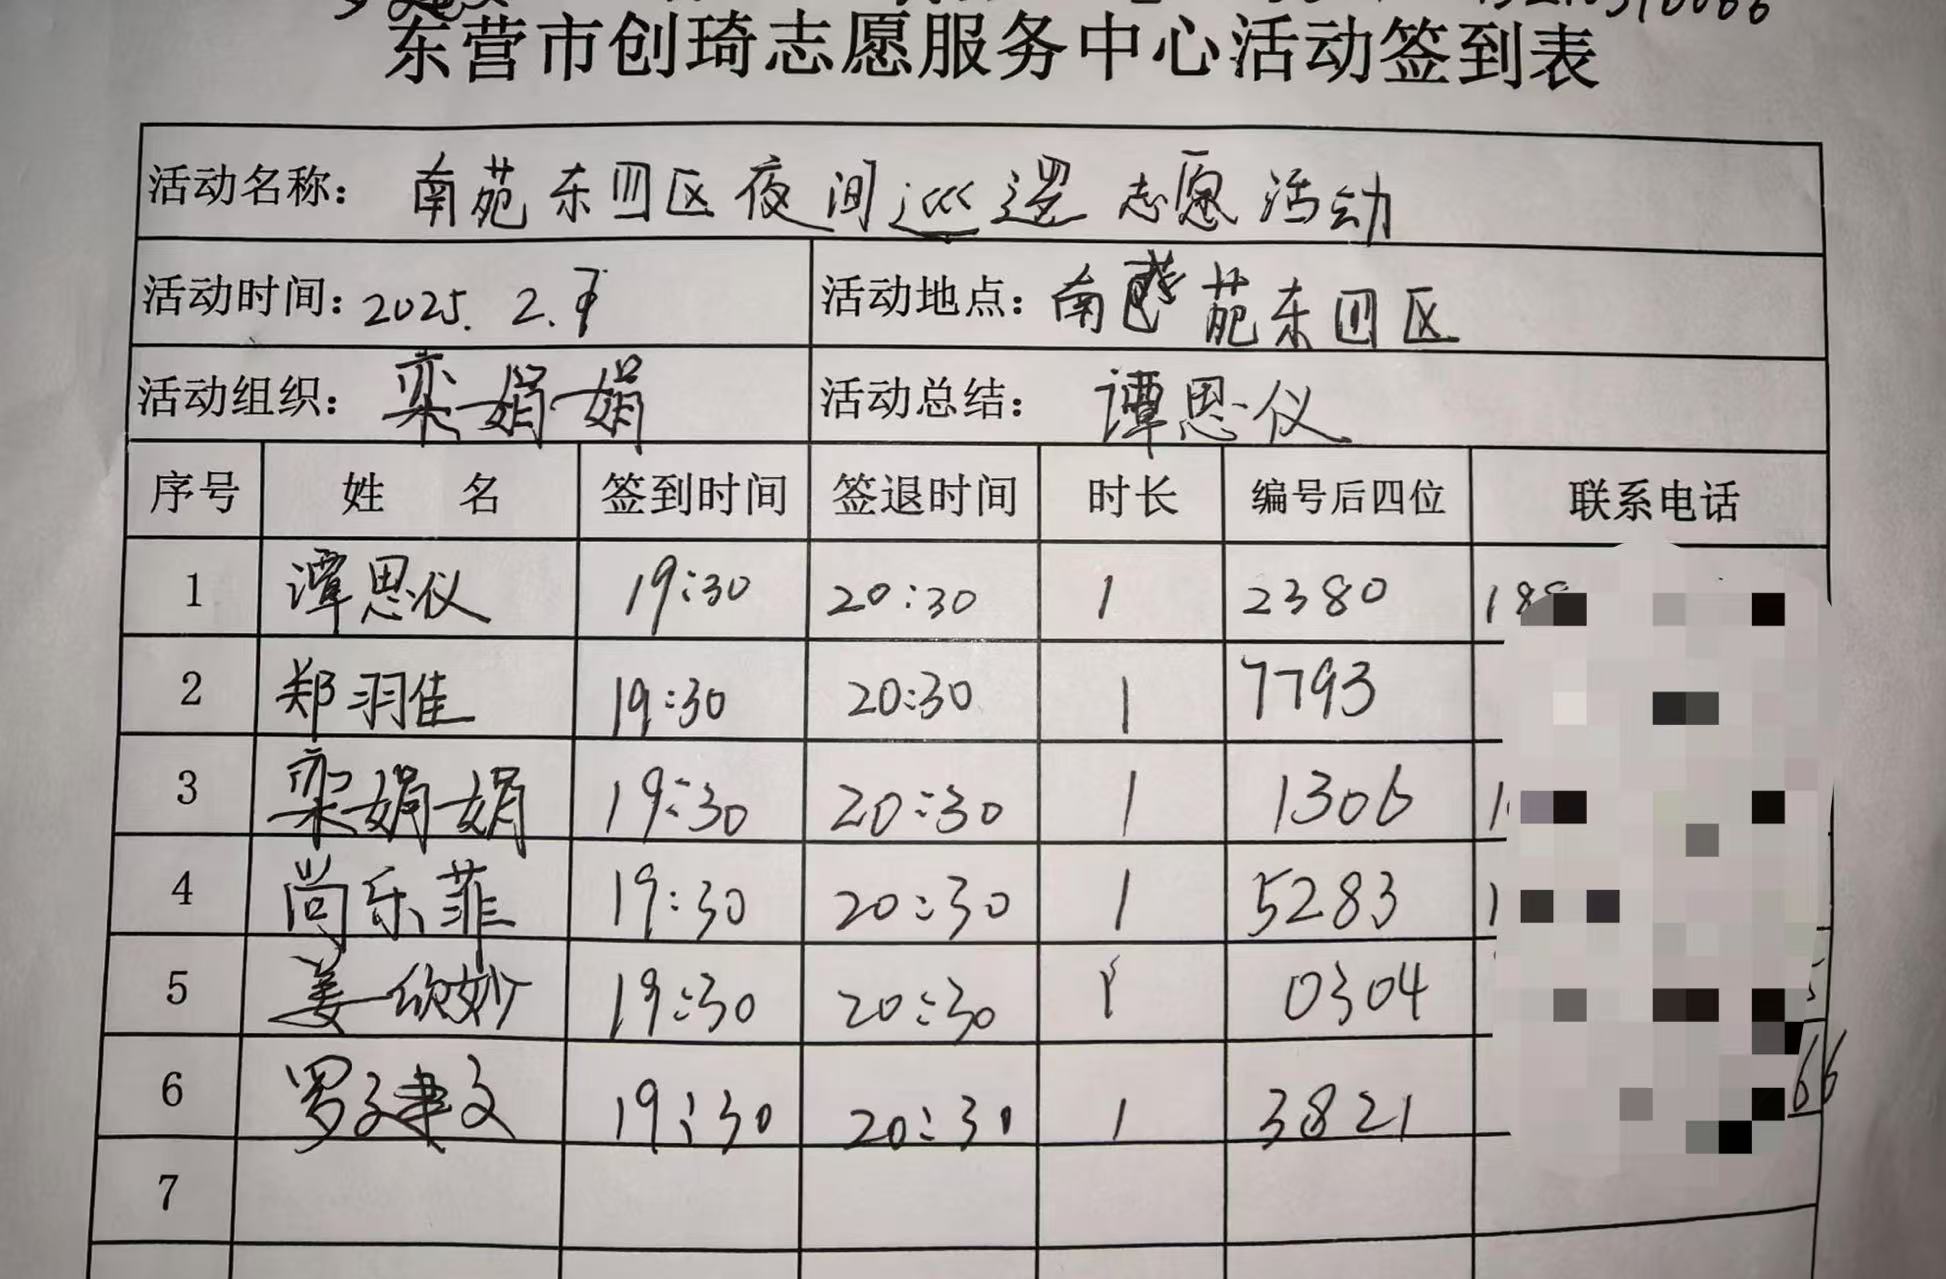 东营市创琦志愿服务中心活动签到表
活动名称: 南苑东四区夜间巡逻志愿活动
活动时间: 2025. 2. 9 活动地点: 南苑东四区
活动组织: 栾娟娟 活动总结: 谭思仪
序号 姓 名 签到时间 签退时间 时长 编号后四位 联系电话
1 谭思仪 19:30 20:30 1 2380 188
2 郑羽佳 19:30 20:30 1 7793
3 栾娟娟 19:30 20:30 1 1306 1
4 尚乐菲 19:30 20:30 1 5283 1
5 姜欣妙 19:30 20:30 1 0304
6 罗建文 19:30 20:30 1 3821 66
7